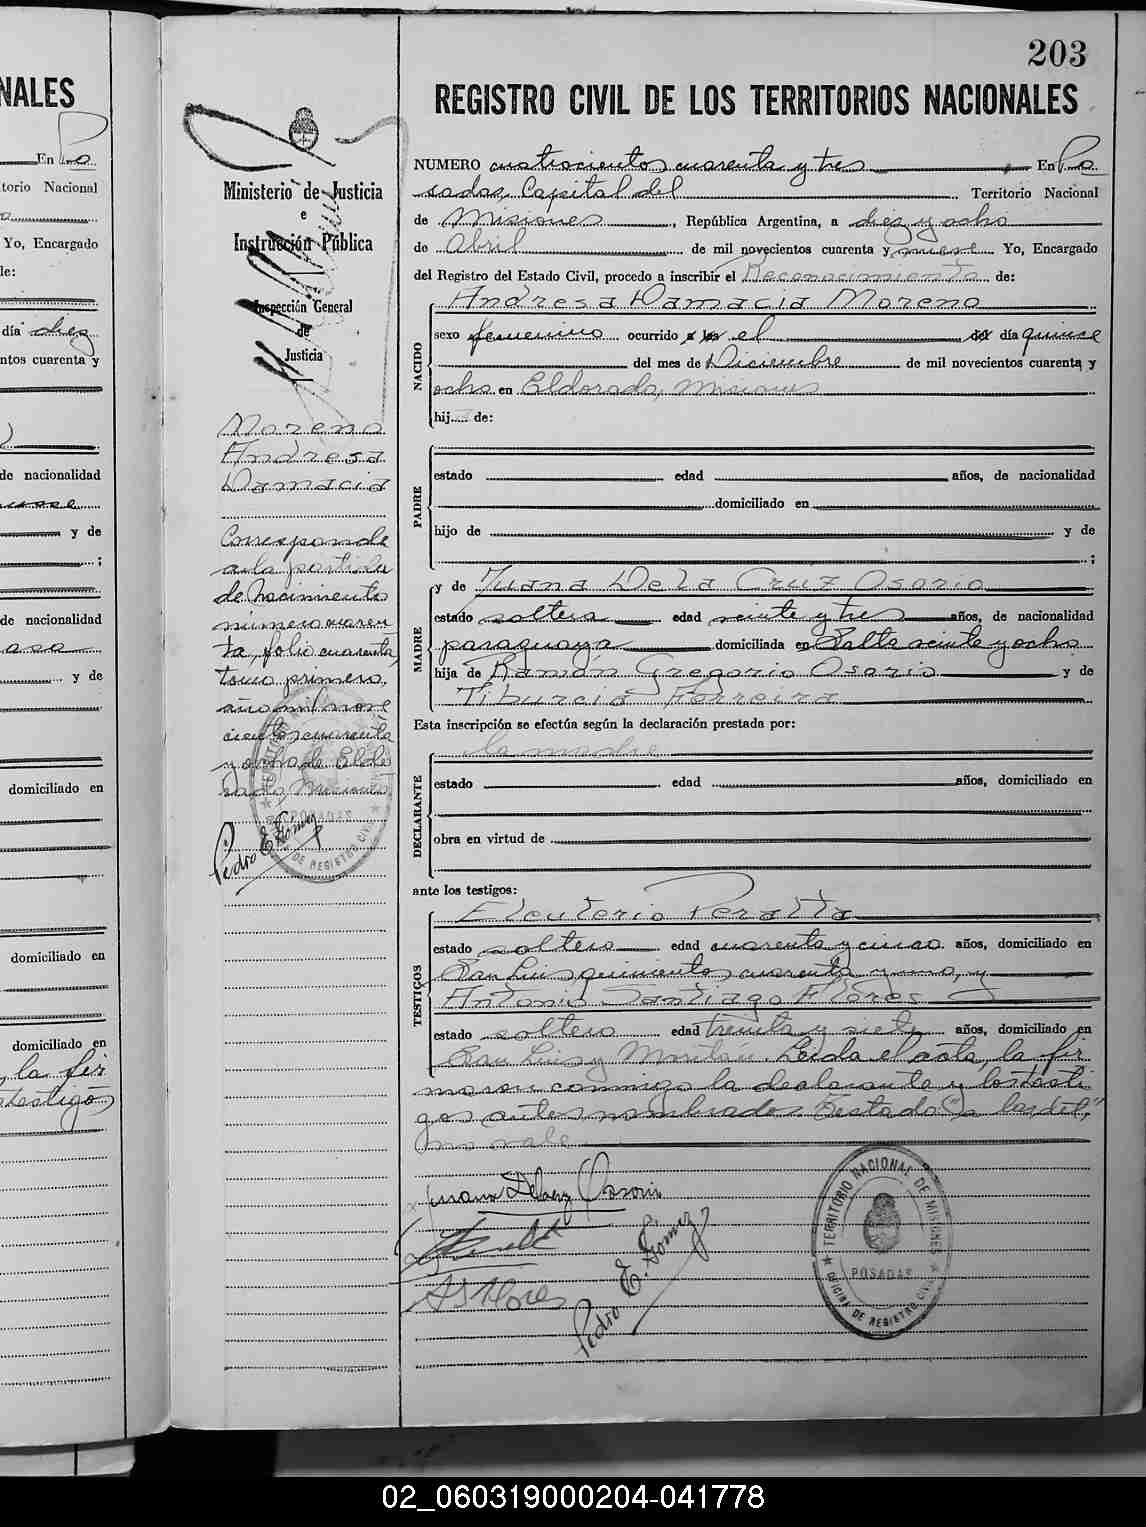 203
NALES
REGISTRO CIVIL DE LOS TERRITORIOS NACIONALES
En Po
torio Nacional
Yo, Encargado
le:
día diez
ntos cuarenta y
de nacionalidad
y de
;
de nacionalidad
y de
domiciliado en
domiciliado en
domiciliado en
, la fir
testigos
Ministerio de Justicia
e
Instrucción Pública
Inspección General
de
Justicia
Moreno
Andresa
Damacia
Corresponde
a la partida
de Nacimiento
número cuaren
ta, folio cuarenta,
tomo primero,
año mil nove
cientos cuarenta
y ocho de Eldo
rado, Misiones
Pedro E. Gómez
NUMERO cuatrocientos cuarenta y tres En Po
sadas, Capital del Territorio Nacional
de Misiones, República Argentina, a diez y ocho
de Abril de mil novecientos cuarenta y nueve Yo, Encargado
del Registro del Estado Civil, procedo a inscribir el Reconocimiento de:
NACIDO
Andresa Damacia Moreno
sexo femenino ocurrido a las el del día quince
del mes de Diciembre de mil novecientos cuarenta y
ocho en Eldorado, Misiones
hija de:
PADRE
estado edad años, de nacionalidad
domiciliado en
hijo de y de
;
MADRE
y de Juana De La Cruz Osorio
estado soltera edad veinte y tres años, de nacionalidad
paraguaya domiciliada en Salta veinte y ocho
hija de Ramón Gregorio Osorio y de
Tiburcia Ferreira
Esta inscripción se efectúa según la declaración prestada por:
DECLARANTE
la madre
estado edad años, domiciliado en
obra en virtud de
ante los testigos:
TESTIGOS
Eleuterio Peralta
estado soltero edad cuarenta y cinco años, domiciliado en
San Luis quinientos cuarenta y uno, y
Antonio Santiago Flores
estado soltero edad treinta y siete años, domiciliado en
San Luis y Leida el acta, la fir
maron conmigo la declarante y los testi
gos antes nombrados Testado: "a las, del,"
no vale
Juana De la Cruz Osorio
AS Flores
Pedro E. Gómez
TERRITORIO NACIONAL DE MISIONES
POSADAS
OFICINA DE REGISTRO CIVIL
02_060319000204-041778